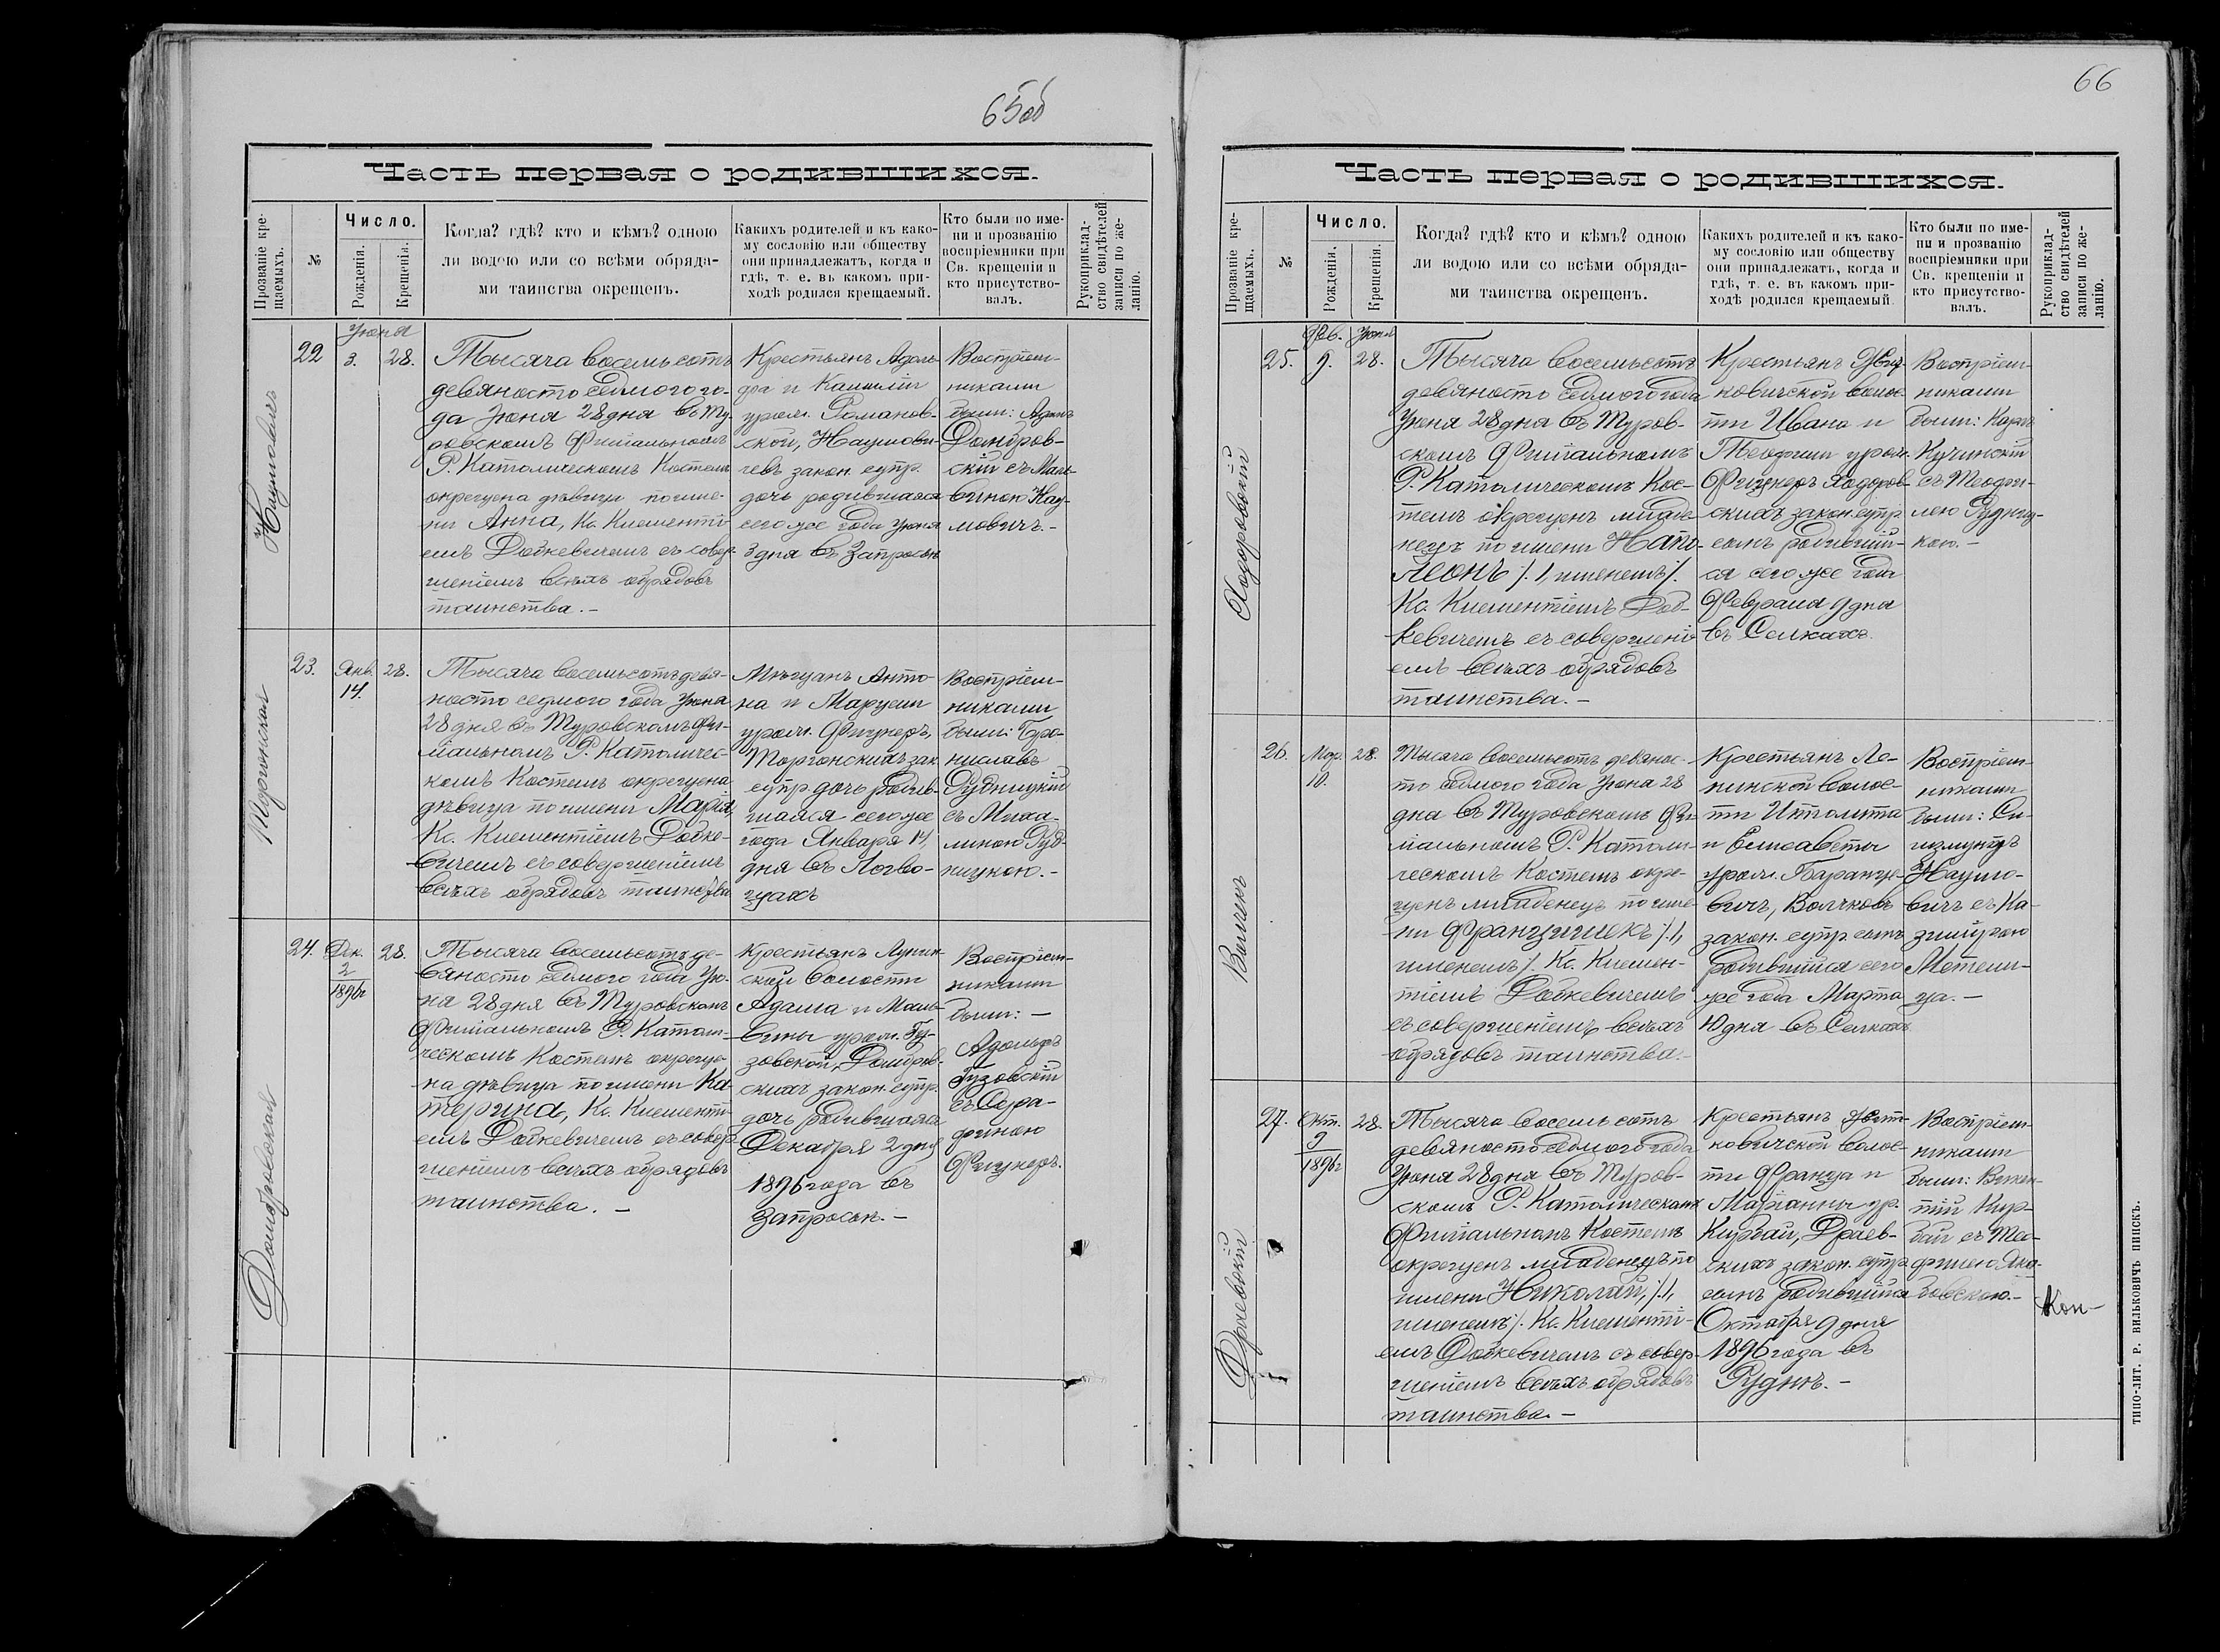 65об
Часть первая о родившихся.
Прозваніе кре-
щаемыхъ.
№
Число.
Рожденія.
Крещенія.
Когда? гдѣ? кто и кѣмъ? одною
ли водою или со всѣми обряда-
ми таинства окрещенъ.
Какихъ родителей и къ како-
му сословію или обществу
они принадлежатъ, когда и
гдѣ, т. е. въ какомъ при-
ходѣ родился крещаемый.
Кто были по име-
ни и прозванію
воспріемники при
Св. крещеніи и
кто присутство-
валъ.
Рукоприклад-
ство свидѣтелей
записи по же-
ланію.
Наумовичъ
22
Іюня
3.
28.
Тысяча восемьсотъ
девяносто седмого го-
да Іюня 28 дня въ Ту-
ровскомъ Филіальномъ
Р. Католическомъ Костелѣ
окрещена дѣвица по име-
ни Анна, Кс. Климентi-
емъ Добкевичемъ съ совер-
шеніемъ всѣхъ обрядовъ
таинства. —
Крестьянъ Адоль-
фа и Камиліи
урожд. Романов-
ской, Наумови-
чевъ закон. супр.
дочь родившаяся
сего же года Іюня
3 дня въ
Воспріем-
никами
были: Адамъ
Домбров-
скій съ Маль-
виною Нау-
мовичъ. —
23.
Янв.
14.
28.
Тысяча восемьсотъ девя-
носто седмого года Іюня
28 дня въ Туровскомъ Фи-
ліальномъ Р. Католичес-
комъ Костелѣ окрещена
дѣвица по имени Марія,
Кс. Климентіемъ Добке-
вичемъ съ совершеніемъ
всѣхъ обрядовъ таинства
Мѣщанъ Анто-
на и Марцели
урожд. Фицнеръ,
зак.
супр. дочь родив-
шаяся сего же
года Января 14
дня въ
Воспріем-
никами
были: Бро-
ниславъ
Рудницкій
съ Миха-
линою Руд-
ницкою. —
Домбровская
24.
Дек.
2
1896г
28.
Тысяча восемьсотъ де-
вяносто седмого года Ію-
ня 28 дня въ Туровскомъ
Филіальномъ Р. Католи-
ческомъ Костелѣ окреще-
на дѣвица по имени Ка-
терина, Кс. Климентi-
емъ Добкевичемъ съ совер-
шеніемъ всѣхъ обрядовъ
таинства. —
Крестьянъ Лунин-
ской волости
Адама и Маль-
вины урожд. Гу-
зовской, Домбров-
скихъ закон. супр.
дочь родившаяся
Декабря 2 дня
1896 года въ
Воспріем-
никами
были: —
Адольфъ
Гузовскій
съ Сера-
финою
Фицнеръ.
66
Часть первая о родившихся.
Прозваніе кре-
щаемыхъ.
№
Число.
Рожденія.
Крещенія.
Когда? гдѣ? кто и кѣмъ? одною
ли водою или со всѣми обряда-
ми таинства окрещенъ.
Какихъ родителей и къ како-
му сословію или обществу
они принадлежатъ, когда и
гдѣ, т. е. въ какомъ при-
ходѣ родился крещаемый.
Кто были по име-
ни и прозванію
воспріемники при
Св. крещеніи и
кто присутство-
валъ.
Рукоприклад-
ство свидѣтелей
записи по же-
ланію.
Ходоровскій
25.
Фев.
9.
Іюня
28.
Тысяча восемьсотъ
девяносто седмого года
Іюня 28 дня въ Туров-
скомъ Филіальномъ
Р. Католическомъ Кос-
телѣ окрещенъ младе-
нецъ по имени Напо-
леонъ /: 1, именемъ /.
Кс. Климентіемъ Доб-
кевичемъ съ совершені-
емъ всѣхъ обрядовъ
таинства. —
Крестьянъ
волос-
ти Ивана и
Теофили урожд.
Фицнеръ Ходоров-
скихъ закон. супр.
сынъ родивший-
ся сего же года
Февраля 9 дня
въ Селкахъ.
Воспріем-
никами
были: Карлъ
Кучинскій
съ Теофи-
лею Рудниц-
кою. —
26.
Мар.
10.
28.
Тысяча восемьсотъ девянос-
то седмого года Іюня 28
дня въ Туровскомъ Фи-
ліальномъ Р. Католи-
ческомъ Костелѣ окре-
щенъ младенецъ по име-
ни Францишекъ /: 1,
именемъ /. Кс. Климен-
тіемъ Добкевичемъ
съ совершеніемъ всѣхъ
обрядовъ таинства. —
Крестьянъ Ле-
нинской волос-
ти Ипполита
и Елисаветы
урожд.
закон. супр. сынъ
родившійся сего
же года Марта
10 дня въ Селкахъ
Воспріем-
никами
были: Си-
гизмундъ
Наумо-
вичъ съ Ка-
зимірою
Метели-
ца. —
Драевскій
27.
Окт.
9
1896г
28.
Тысяча восемьсотъ
девяносто седмого года
Іюня 28 дня въ Туров-
скомъ Р. Католическомъ
Филіальномъ Костелѣ
окрещенъ младенецъ по
имени Николай, /: 1,
именемъ /. Кс. Климентi-
емъ Добкевичемъ съ совер-
шеніемъ всѣхъ обрядовъ
таинства. —
Крестьянъ
волос-
ти Франца и
Маріанны ур.
Кирбай, Драев-
скихъ закон. супр.
сынъ родившійся
Октября 9 дня
1896 года въ
Руднѣ. —
Воспріем-
никами
были: Викен-
тій Кир-
бай съ Тео-
филею
Кон-
ТИПО-ЛИТ. Р. ВИЛЬКОВИЧЪ ПИНСКЪ.